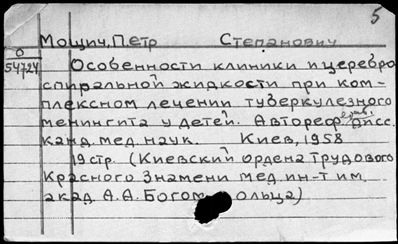 5
Мощич, Петр Степанович
О
54724
Особенности клиники и церебро
спиральной жидкости при ком-
плексном лечении туберкулезного
менингита у детей. Автореф. дисс.
канд. мед. наук. Киев, 1958
19 стр. (Киевский ордена Трудового
Красного Знамени мед. ин-т им.
акад. А.А. Богом ольца)